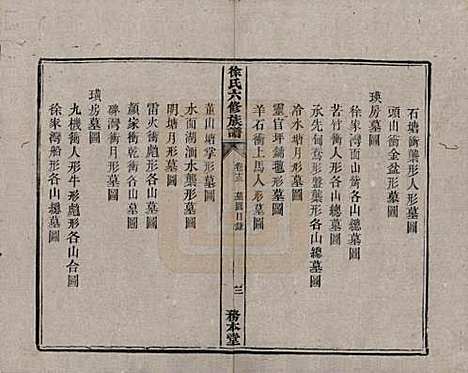 石塘衝葉形人形墓圖
頭山衝金盆形墓圖
瑛房墓圖
徐家灣面前山衝各山總墓圖
苦竹衝人形各山總墓圖
承先甸鵞形盤葉形各山總墓圖
冷水塘月形墓圖
靈官坪鋪氊形墓圖
羊石衝上馬人形墓圖
徐氏六修族譜
卷六 墓圖目錄
三
務本堂
董山塘掌形墓圖
水面湖洄水盤形墓圖
明塘月形墓圖
雷火衝彪形各山墓圖
顏家衝乾衝各山墓圖
衝月形墓圖
璜房墓圖
九機衝人形牛形彪形各山合圖
徐家灣船形各山總墓圖